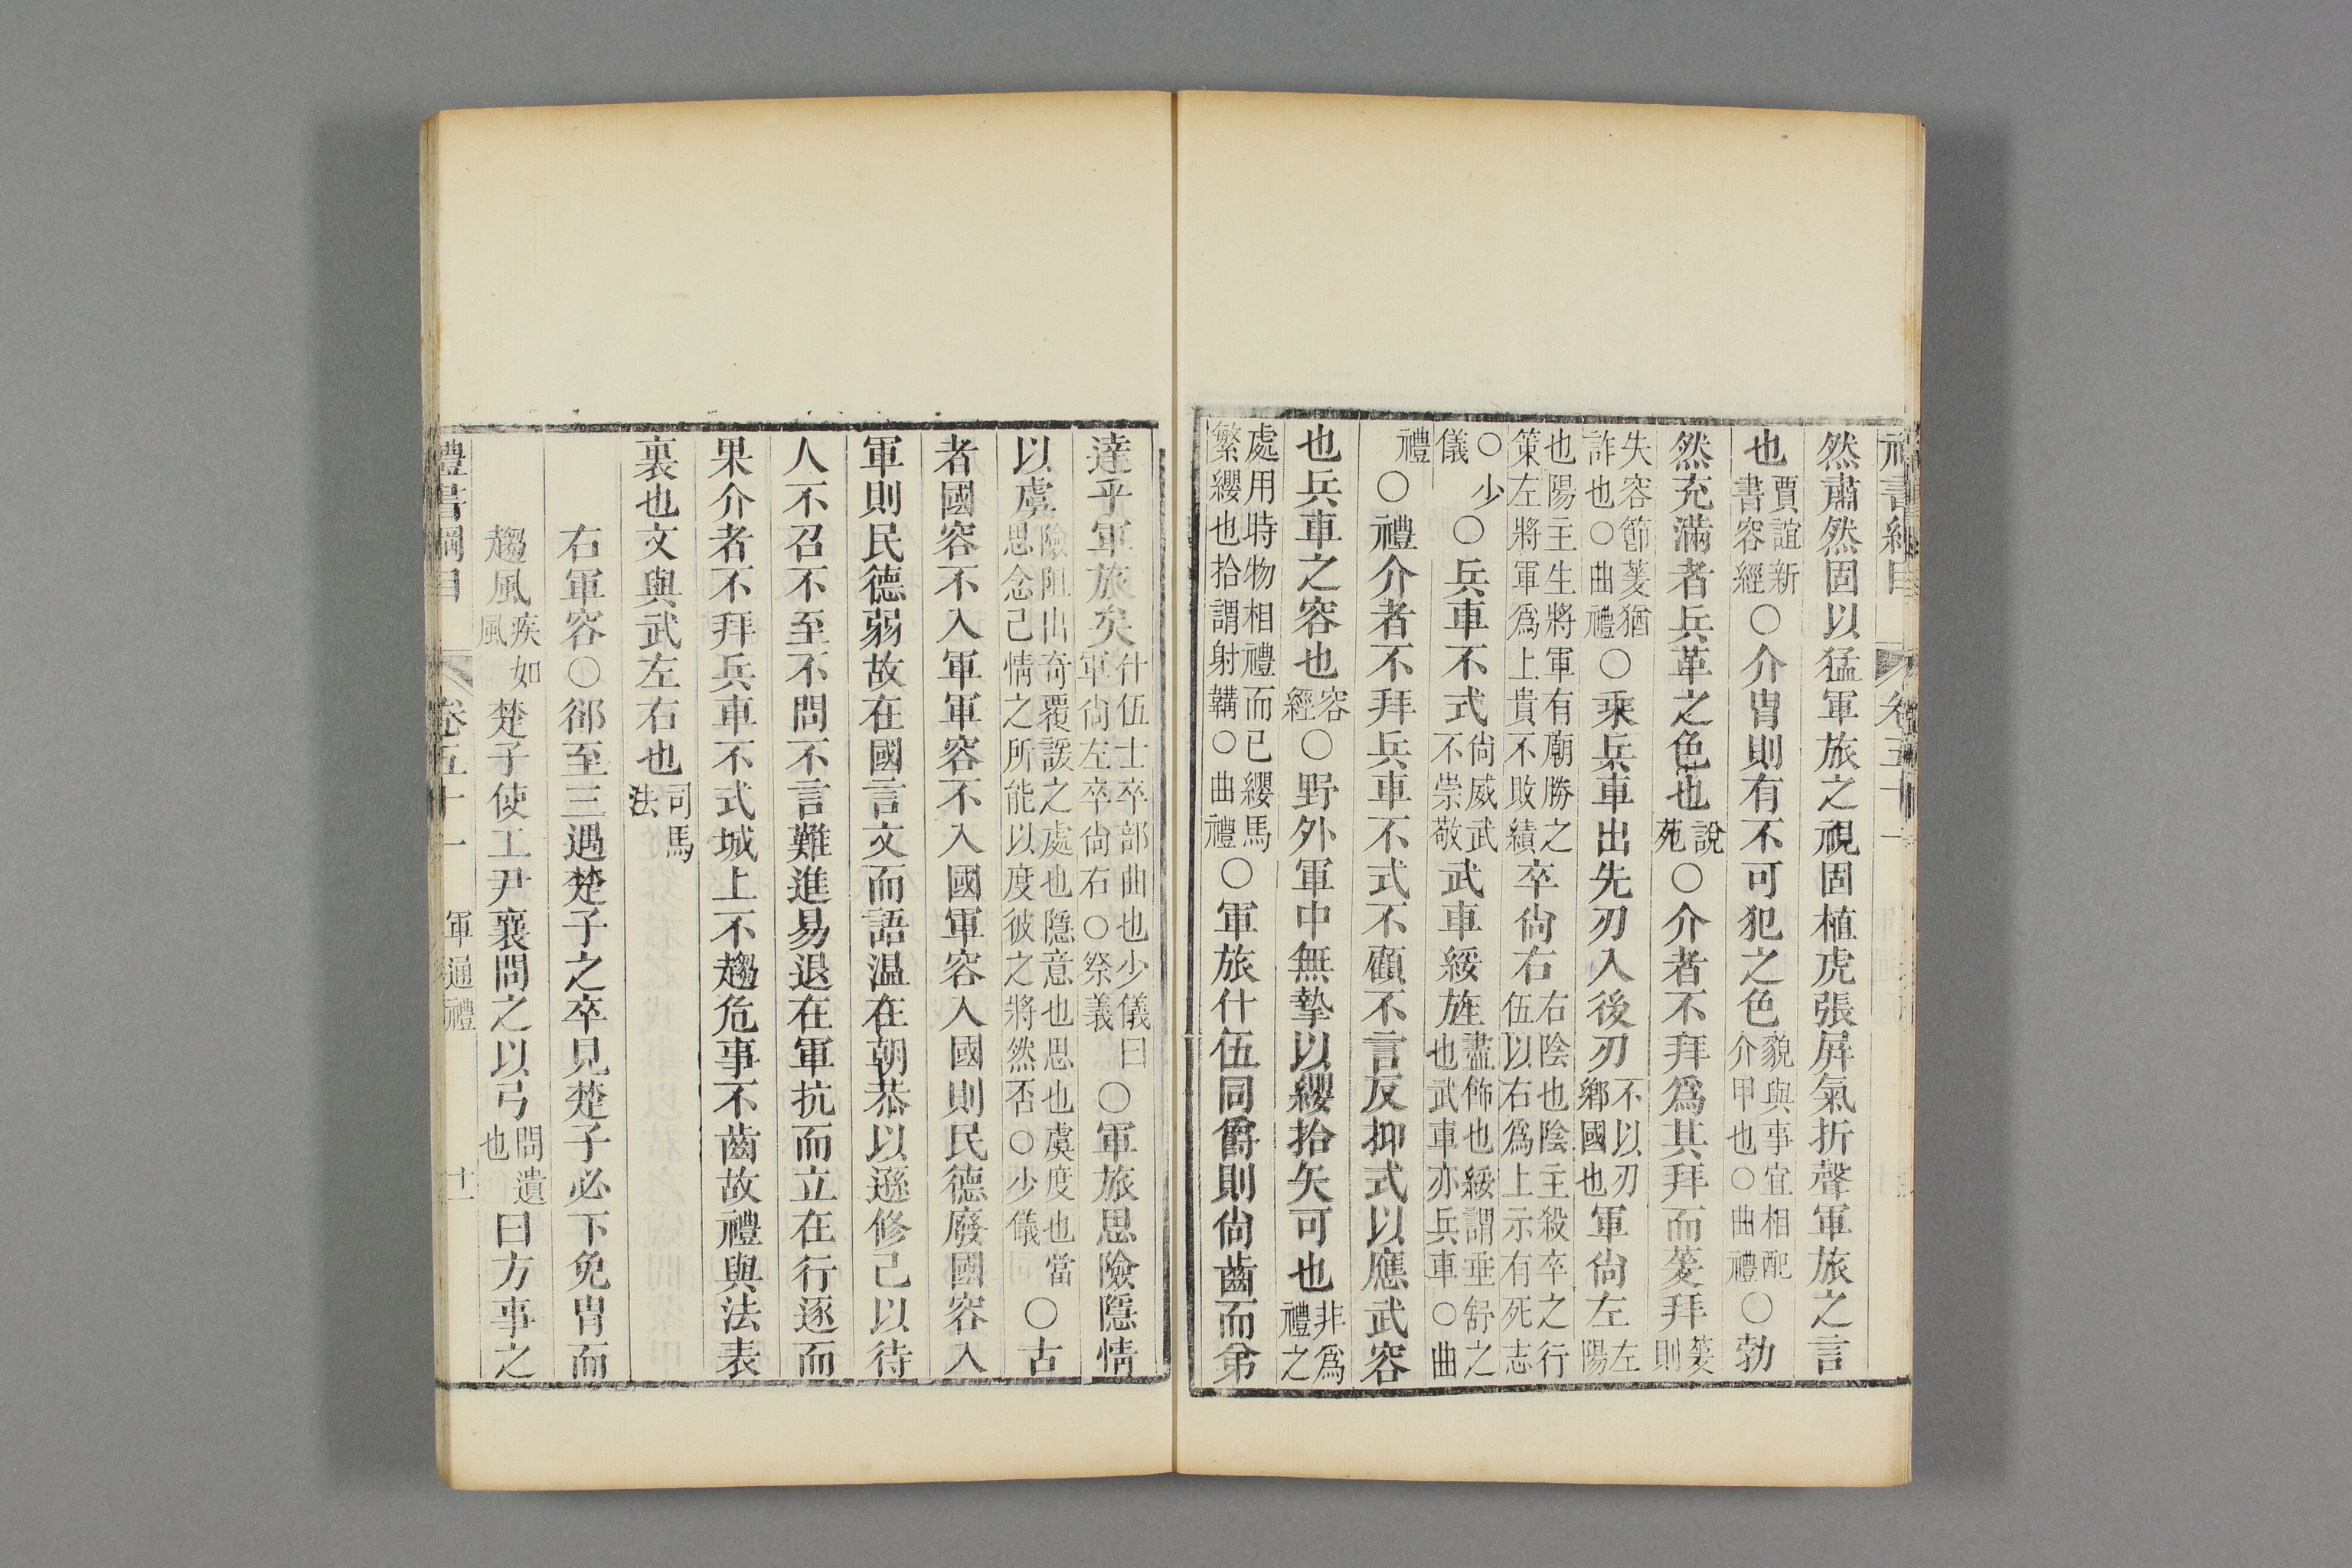 然肅然固以猛軍旅之視固植虎張屛氣折聲軍旅之言
也賈誼新書容經○介冑則有不可犯之色貌與事宜相配介甲也○曲禮○勃
然充滿者兵革之色也說苑○介者不拜爲其拜而蓌拜蓌則
失容節蓌猶詐也○曲禮○乘兵車出先刃入後刃不以刃鄕國也軍尙左左陽
也陽主生將軍有廟勝之策左將軍爲上貴不敗績卒尙右右陰也陰主殺卒之行伍以右爲上示有死志
○少儀○兵車不式尙威武不崇敬武車綏旌盡飾也綏謂垂舒之也武車亦兵車○曲
禮○禮介者不拜兵車不式不顧不言反抑式以應武容
也兵車之容也容經○野外軍中無摯以纓拾矢可也非爲禮之
處用時物相禮而已纓馬繁纓也拾謂射韝○曲禮○軍旅什伍同爵則尙齒而弟
達乎軍旅矣什伍士卒部曲也少儀曰軍尙左卒尙右○祭義○軍旅思險隱情
以虞險阻出奇覆諼之處也隱意也思也虞度也當思念己情之所能以度彼之將然否○少儀○古
者國容不入軍軍容不入國軍容入國則民德廢國容入
軍則民德弱故在國言文而語温在朝恭以遜修己以待
人不召不至不問不言難進易退在軍抗而立在行逐而
果介者不拜兵車不式城上不趨危事不齒故禮與法表
裏也文與武左右也司馬法
右軍容○郤至三遇楚子之卒見楚子必下免冑而
趨風疾如風楚子使工尹襄問之以弓問遺也曰方事之
禮書綱目 卷五十一 軍通禮 十一